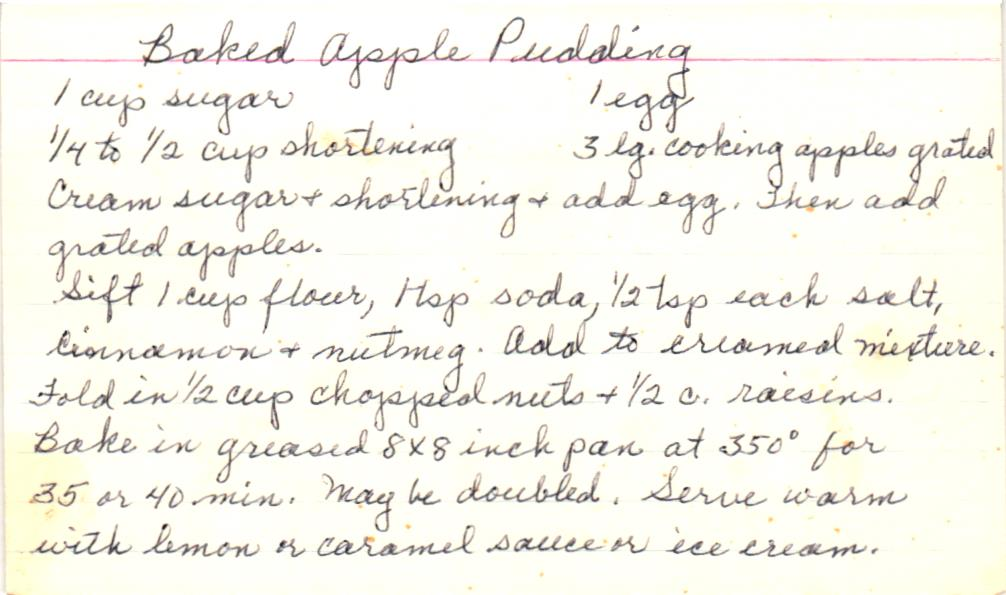 Baked Apple Pudding
1 cup sugar 1 egg
1/4 to 1/2 cup shortening 3 lg. cooking apples grated
Cream sugar + shortening + add egg. Then add
grated apples.
Sift 1 cup flour, 1 tsp soda, 1/2 tsp each salt,
cinnamon + nutmeg. Add to creamed mixture.
Fold in 1/2 cup chopped nuts + 1/2 c. raisins.
Bake in greased 8x8 inch pan at 350° for
35 or 40 min. May be doubled. Serve warm
with lemon or caramel sauce or ice cream.